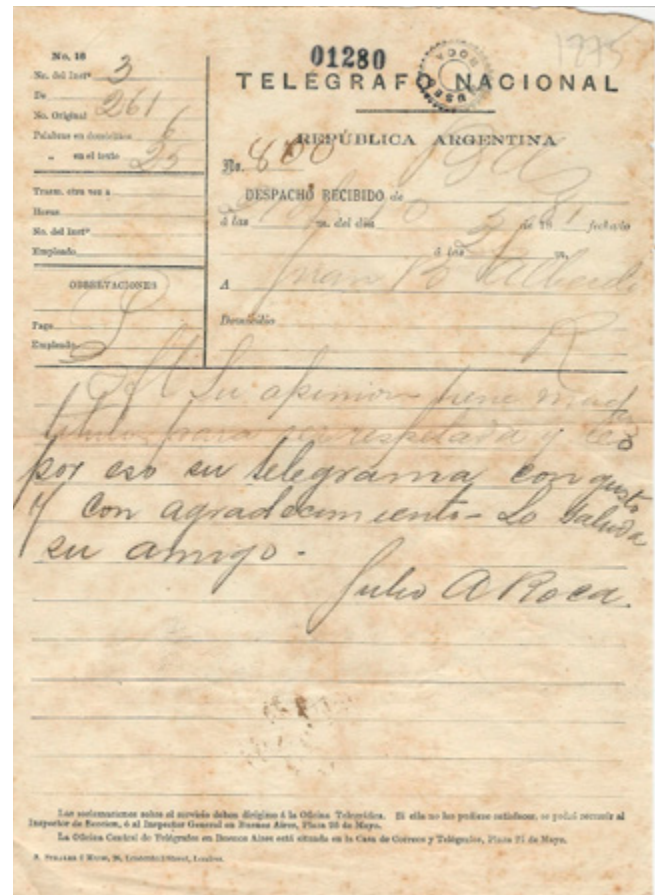 1275
No. 10
No. del Instº 3
De
No. Original 261
Palabras en domicilio 6
„ en el texto 25
Trasm. otra vez a
Horas
No. del Instº
Empleado
OBSERVACIONES
Pago
Empleado
01280
TELÉGRAFO NACIONAL
REPÚBLICA ARGENTINA
No. 800
DESPACHO RECIBIDO de
á las m. del dia de 18 81 fechado
á las m.
A Juan B Alberdi
Domicilio
Su opinion tiene mas
titulos para ser respetada y leo
por eso su telegrama con gusto
y con agradecimiento - Lo saluda
su amigo -
Julio A Roca.
Las reclamaciones sobre el servicio deben dirigirse á la Oficina Telegráfica. Si ella no las pudiese satisfacer, se podrá recurrir al
Inspector de Seccion, ó al Inspector General en Buenos Aires, Plaza 25 de Mayo.
La Oficina Central de Telégrafos en Buenos Aires está situada en la Casa de Correos y Telégrafos, Plaza 25 de Mayo.